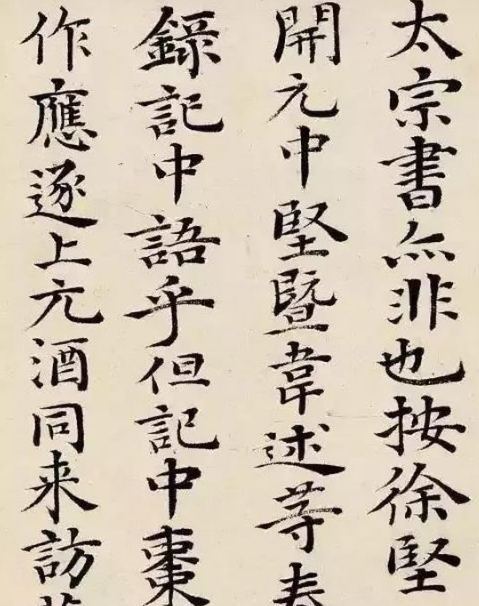 太宗書亦非也按徐堅
開元中堅暨韋述等奏
錄記中語乎但記中棗
作應逐上元酒同来訪